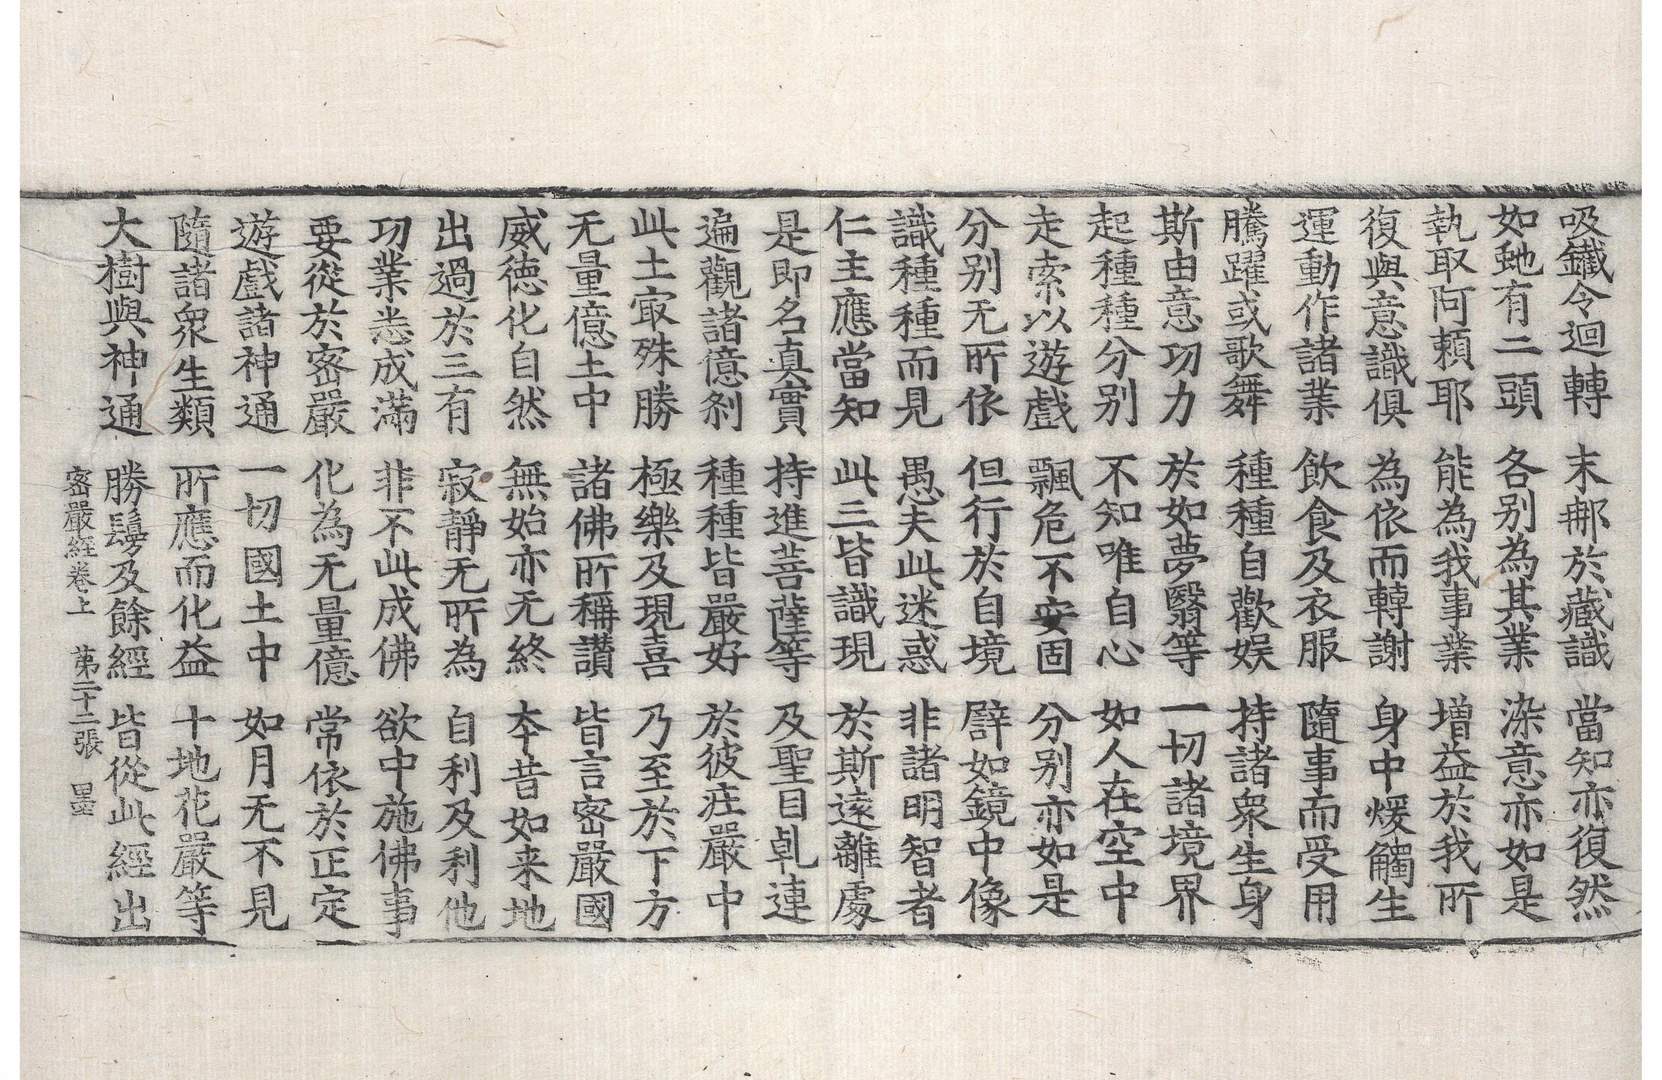 吸鐵令迴轉 末那於藏識 當知亦復然
如虵有二頭 各别為其業 染意亦如是
執取阿賴耶 能為我事業 增益於我所
復與意識俱 為依而轉謝 身中煖觸生
運動作諸業 飲食及衣服 隨事而受用
騰躍或歌舞 種種自歡娱 持諸衆生身
斯由意功力 於如夢翳等 一切諸境界
起種種分别 不知唯自心 如人在空中
走索以遊戲 飄危不安固 分别亦如是
分别无所依 但行於自境 譬如鏡中像
識種種而見 愚夫此迷惑 非諸明智者
仁主應當知 此三皆識現 於斯遠離處
是即名真實 持進菩薩等 及聖目乹連
遍觀諸億剎 種種皆嚴好 於彼庄嚴中
此土㝡殊勝 極樂及現喜 乃至於下方
无量億土中 諸佛所稱讃 皆言密嚴國
威德化自然 無始亦无終 本昔如来地
出過於三有 寂靜无所為 自利及利他
功業悉成滿 非不此成佛 欲中施佛事
要從於密嚴 化為无量億 常依於正定
遊戲諸神通 一切國土中 如月无不見
隨諸衆生類 所應而化益 十地花嚴等
大樹與神通 勝鬘及餘經 皆從此經出
密嚴經卷上 第二十二張 墨